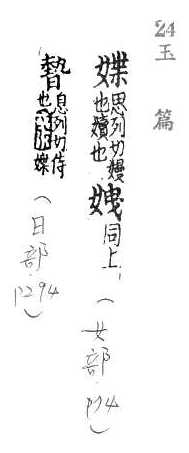 24 玉篇
媟 思列切嫚也嬻也 同上 (女部.
暬 息列切侍也 媟 (日部.P294)